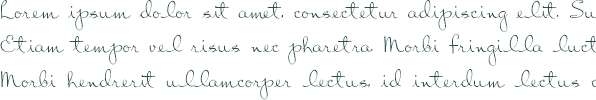 Lorem ipsum dolor sit amet, consectetur adipiscing elit. Su
Etiam tempor vel risus nec pharetra. Morbi fringilla luct
Morbi hendrerit ullamcorper lectus, id interdum lectus